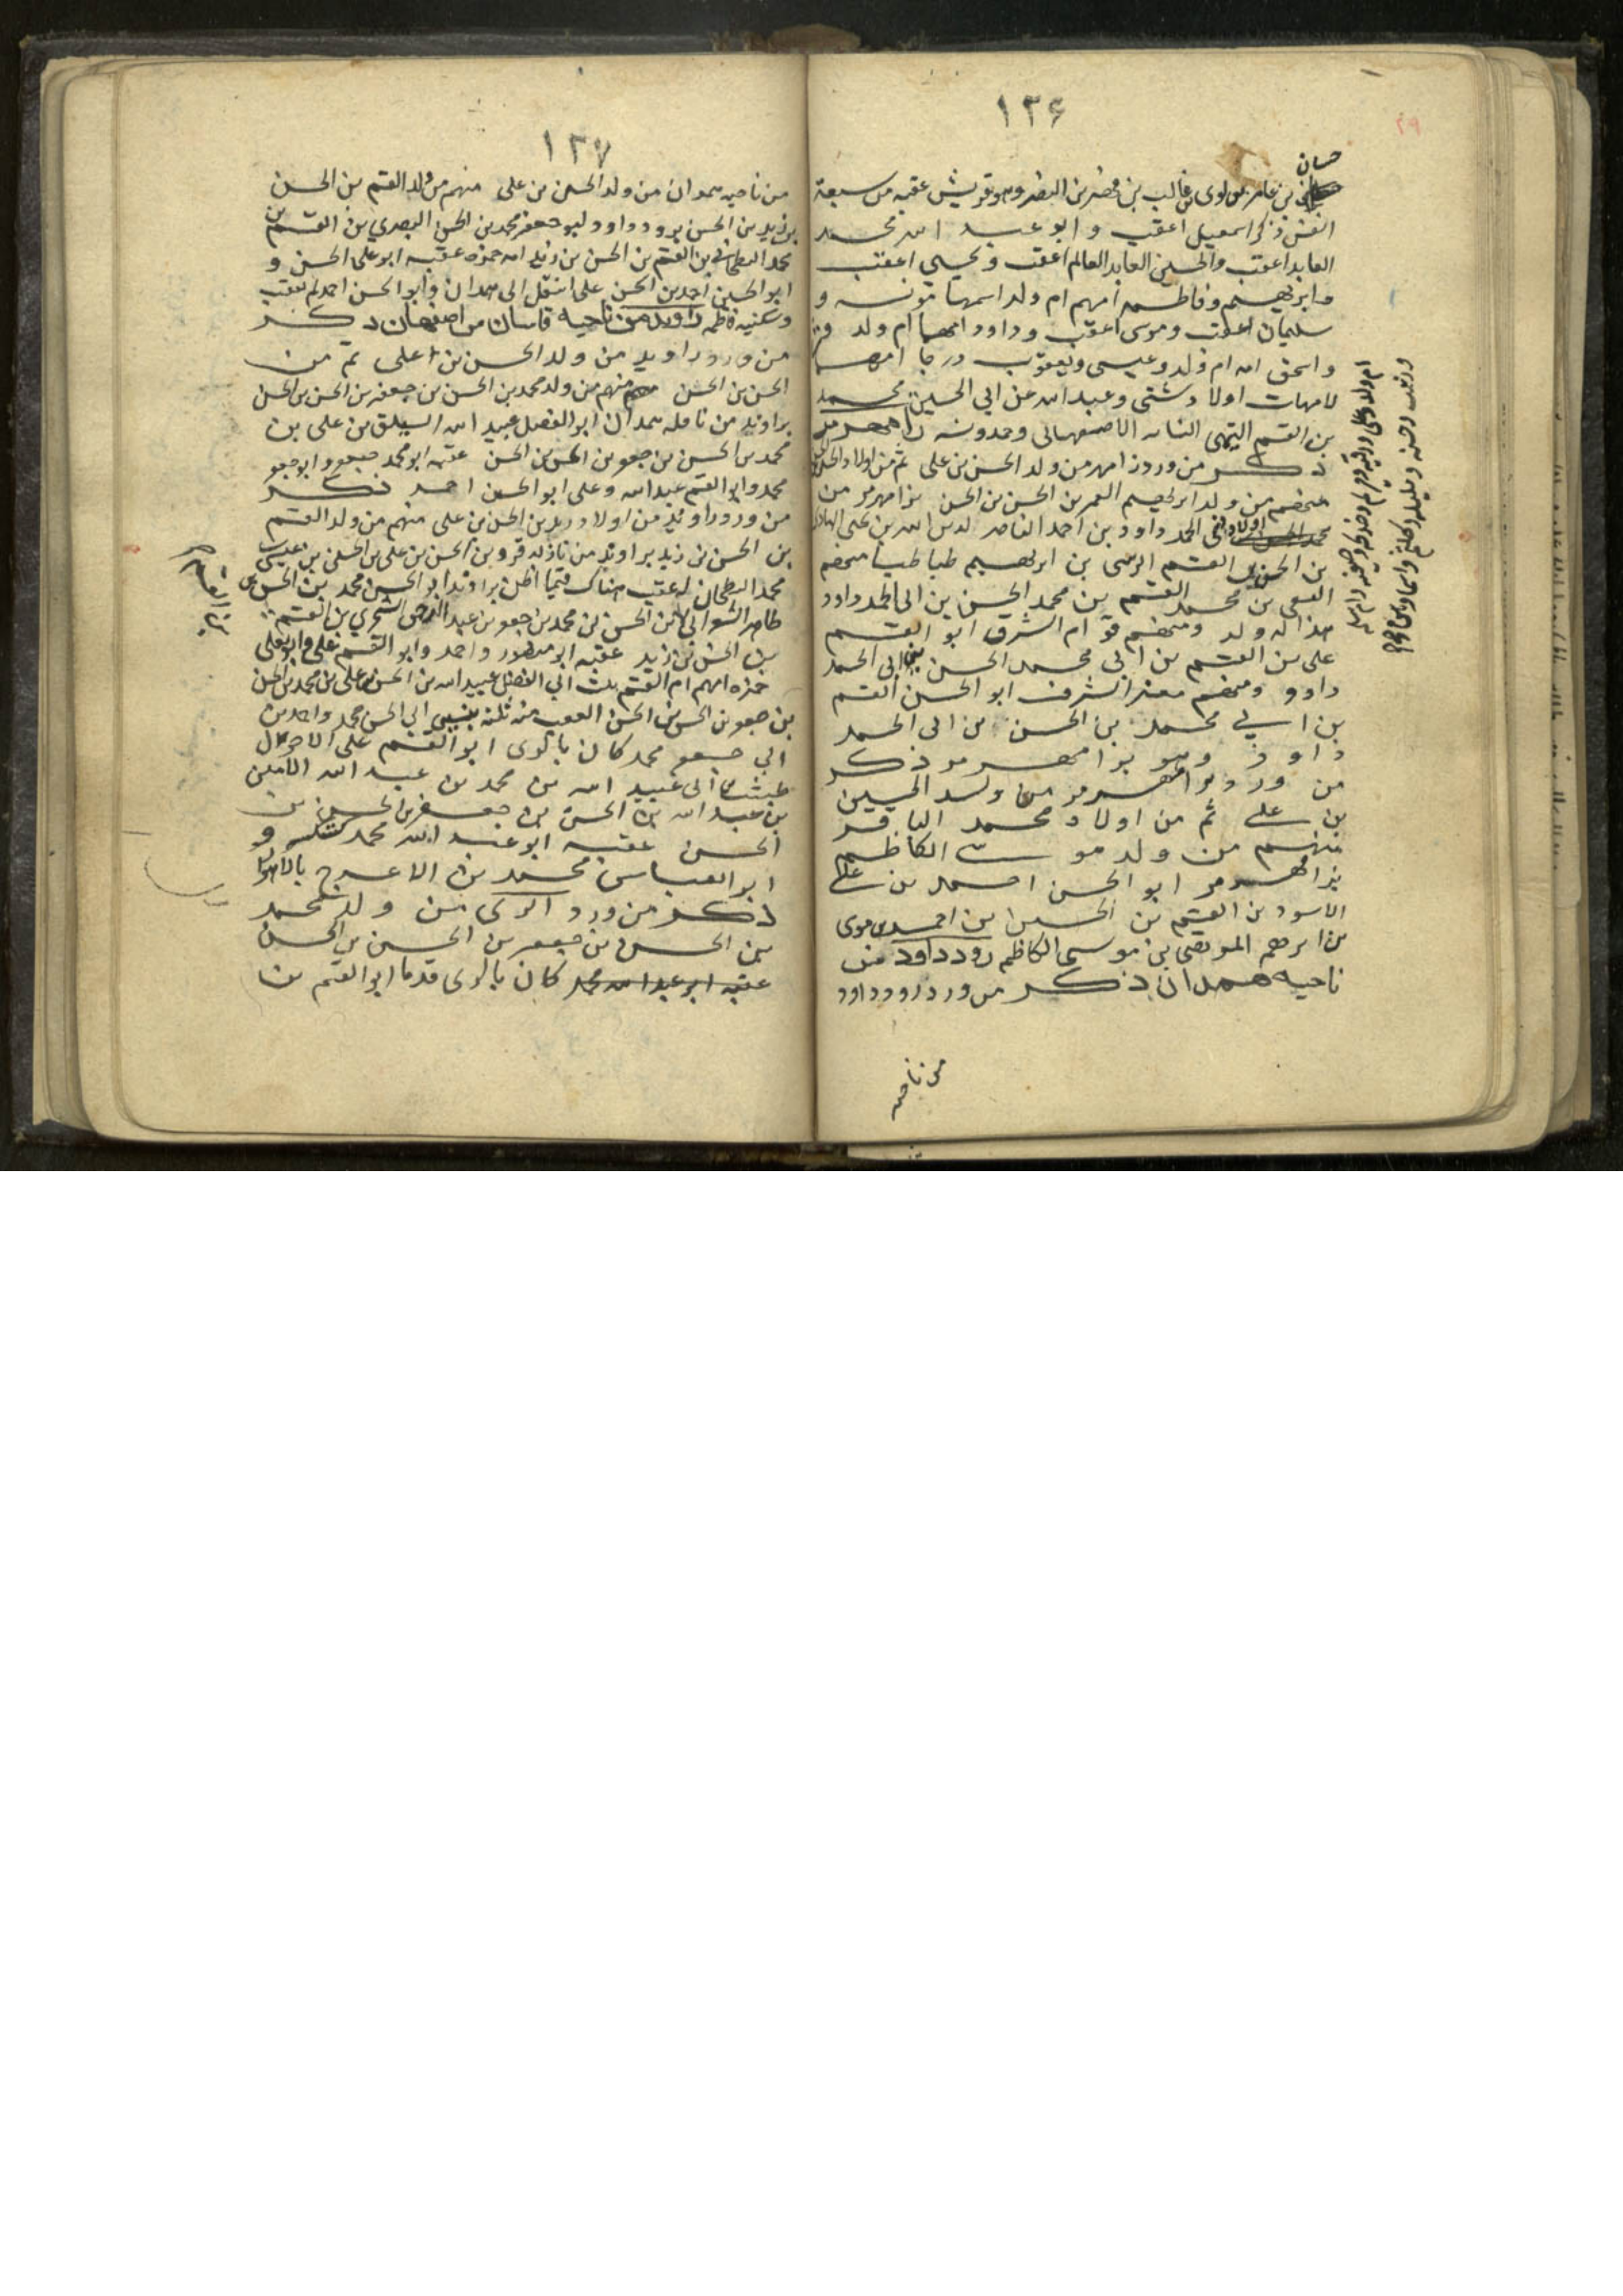 ١٣۶
٢٩
حسان
بن عامر بن لوى بن غالب بن فهر بن النضر وهو قريش عقبه من سبعة
انفس ذكر اسمعيل اعقب و ابو عبد الله محمد
العابد اعقب والحسين العابد العالم اعقب و يحيى اعقب
و ابرهيم و فاطمه امهم ام ولد اسمها مونسه و
سليمان اعقب وموسى اعقب وداود امهما ام ولد
و اسحق امه ام ولد و عيسى ويعقوب درجا امهما
لامهات اولاد شتى وعبد الله عن ابي الحسين محمد
بن القسم التيمى النسابه الاصفهانى وحمدونه رامهرمز
ذكر من ورد رامهرمز من ولد الحسن بن على ثم من اولاد الحسن
منهم من ولد ابرهيم الغمر بن الحسن بن الحسن برامهرمز من
ابى الحمد داود بن احمد الناصر لدين الله بن يحيى الهادى
بن الحسين بن القسم الرسى بن ابرهيم طباطبا منهم
القسم بن محمد الحسن بن ابى الحمد داود
هذا له ولد ومنهم قوام الشرف ابو القسم
على بن القسم بن ابى محمد الحسن بن ابى الحمد
داود ومنهم معز الشرف ابو الحسن القسم
بن ابي محمد بن الحسن بن ابى الحمد
داود وهو برامهرمز ذكر
من ورد رامهرمز من ولد الحسين
بن على ثم من اولاد محمد الباقر
منهم من ولد موسى الكاظم
برامهرمز ابو الحسن احمد بن على
الاسود بن القسم بن الحسين بن احمد بن موسى
بن ابرهيم المرتضى بن موسى الكاظم رودداود من
ناحيه همدان ذكر من ورد رودداود
من ناحيه
١٣٧
من ناحيه همدان من ولد الحسن بن على منهم من ولد القسم بن الحسن
بن زيد بن الحسن برودداود ابو جعفر محمد بن الحسن البصري بن القسم بن
محمد البطحاني بن القسم بن الحسن بن زيد امه حمزه عقبه ابو على الحسن و
ابو الحسين احمد بن الحسن على انتقل الى همدان وابو الحسن احمد لم يعقب
وسكينه فاطمه راوند من ناحيه قاسان من اصفهان ذكر
من ورد راوند من ولد الحسن بن على ثم من
الحسن بن الحسن منهم من ولد محمد بن الحسن بن جعفر بن الحسن بن الحسن
براوند من ناقله همدان ابو الفضل عبيد الله السيلق بن على بن
محمد بن الحسن بن جعفر بن الحسن بن الحسن عقبه ابو محمد جعفر وابو جعفر
محمد وابو القسم عبد الله وعلى ابو الحسين احمد ذكر
من ورد راوند من اولاد زيد بن الحسن بن على منهم من ولد القسم
بن الحسن بن زيد براوند من نازله قزوين الحسن بن على بن الحسين بن عيسى
محمد البطحانى له عقب هناك فيما اظن براوند ابو الحسين محمد بن الحسن بن
طاهر بن الحسن بن محمد بن جعفر بن عبد الرحمن الشجري بن القسم
بن الحسن بن زيد عقبه ابو منصور واحمد وابو القسم على وابو يعلى
حمزه امهم ام القسم بنت ابي الفضل عبيد الله بن الحسن بن على بن محمد بن الحسن
بن جعفر بن الحسن بن الحسن العقب منه ثلثه بنين ابى الحسن محمد واحد من
ابي جعفر محمد كان بالرى ابو القسم على الاحول
بن ابى عبيد الله بن محمد بن عبد الله الامين
بن عبد الله بن الحسن بن جعفر بن الحسن بن
الحسن عقبه ابو عبد الله محمد و
ابو العباس محمد بن الاعرج بالاهواز
ذكر من ورد الرى من ولد محمد
بن الحسن بن جعفر بن الحسن بن الحسن
عقبه ابو عبد الله محمد كان بالرى قدما ابو القسم بن